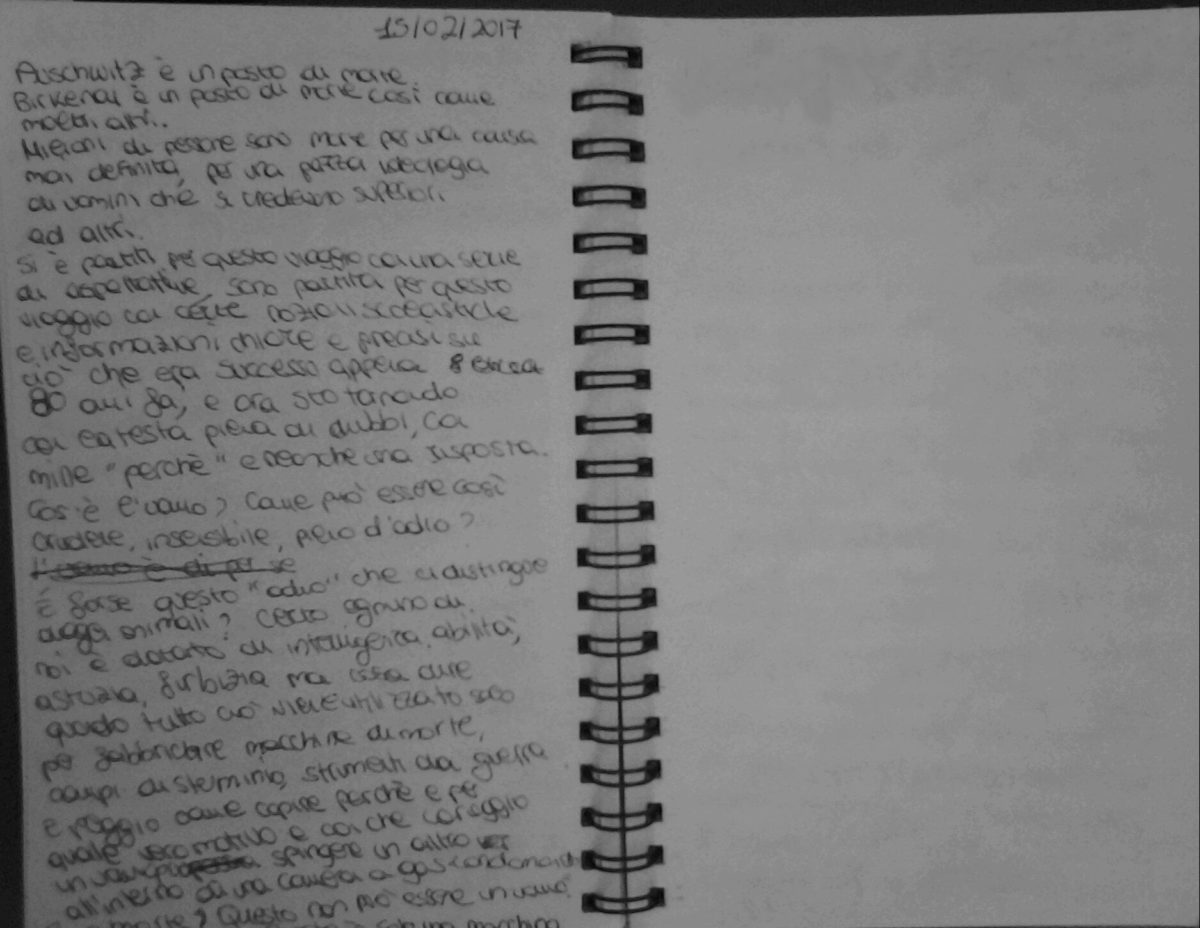 15/02/2017
Auschwitz è un posto di morte.
Birkenau è un posto di morte così come
molti altri.
Milioni di persone sono morte per una causa
mai definita, per una pazza ideologia
di uomini che si credevano superiori
ad altri.
Si è partiti per questo viaggio con una serie
di aspettative, sono partita per questo
viaggio con certe nozioni scolastiche
e informazioni chiare e precise su
ciò che era successo appena circa
80 anni fa, e ora sto tornando
con la testa piena di dubbi, con
mille "perchè" e neanche una risposta.
Cos'è l'uomo? Come può essere così
crudele, insensibile, pieno d'odio?
l'uomo è di per se
È forse questo "odio" che ci distingue
dagli animali? Certo ognuno di
noi è dotato di intelligenza, abilità,
astuzia, furbizia ma cosa dire
quando tutto ciò viene utilizzato solo
per fabbricare macchine di morte,
campi di sterminio, strumenti da guerra
e peggio come capire perchè e per
quale vero motivo e con che coraggio
un uomo spingere un altro
all'interno di una camera a gas
morte? Questo non può essere un uomo
macchina